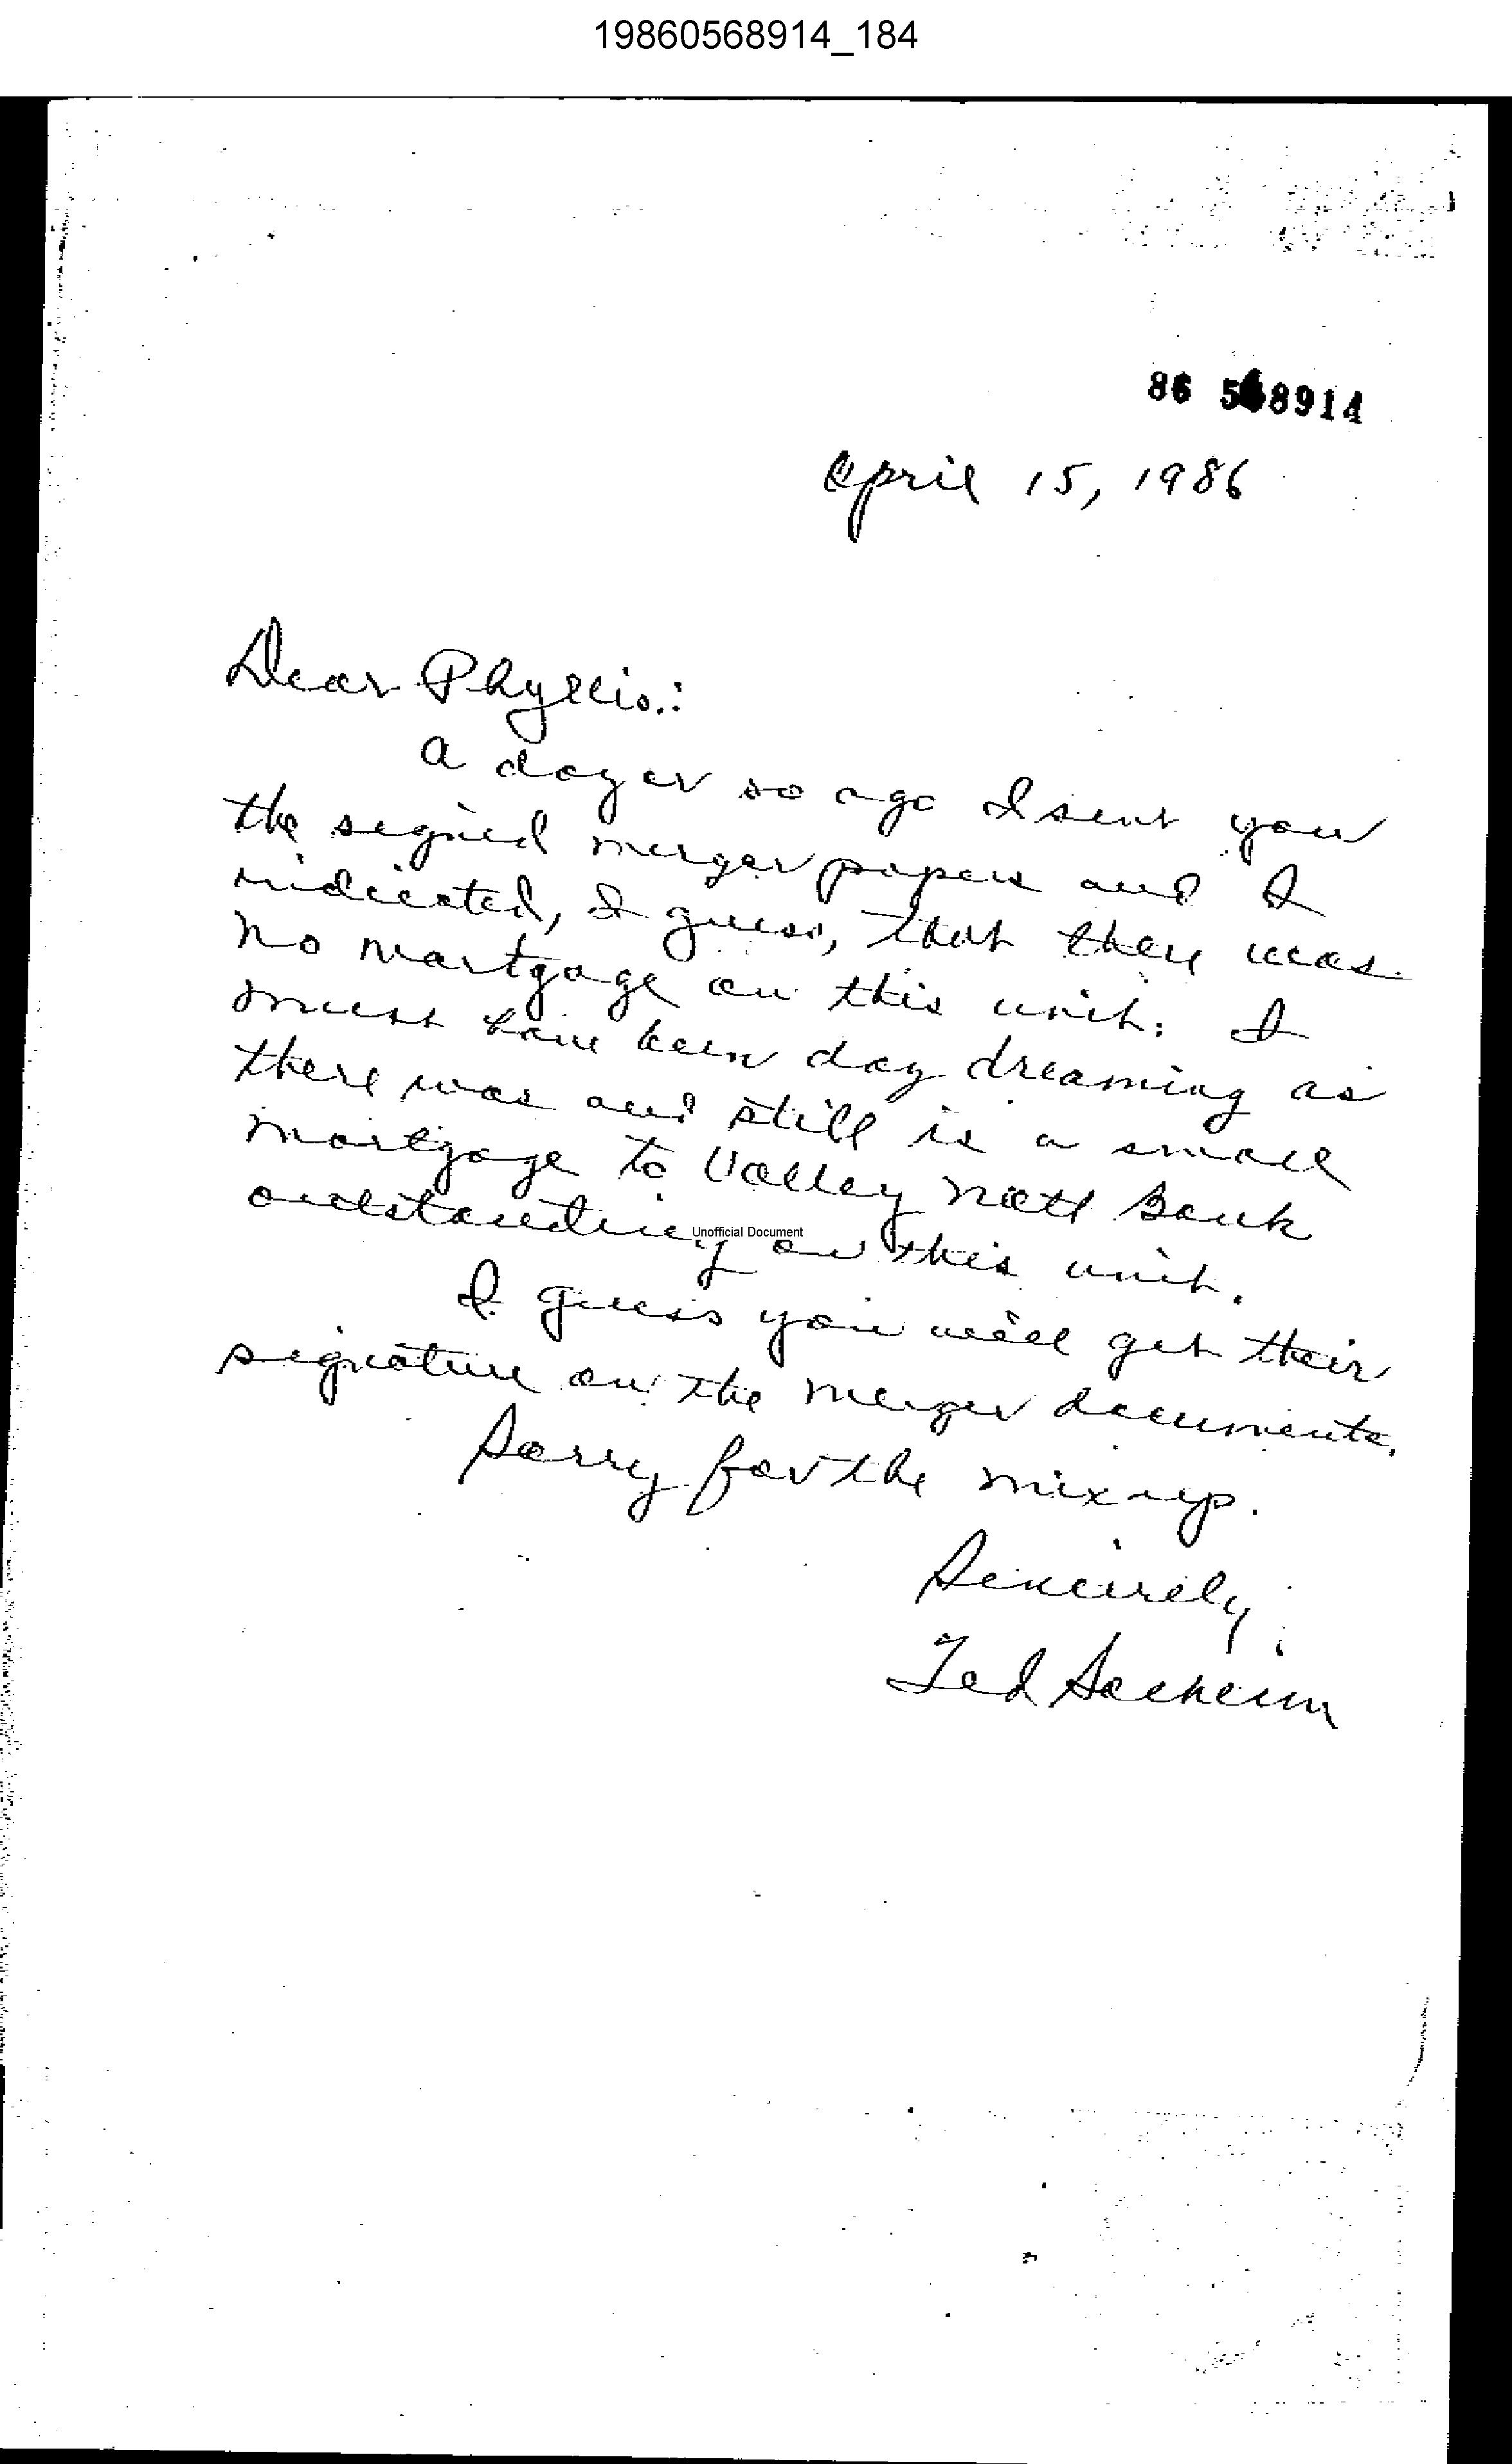 19860568914_184
86 568914
April 15, 1986
Dear Phyllis:
A day or so ago I sent you
the signed merger papers and I
indicated, I guess, that there was
no mortgage on this unit. I
must have been day dreaming as
there was and still is a small
mortgage to Valley Natl Bank
outstanding on this unit.
Unofficial Document
I guess you will get their
signature on the merger documents.
Sorry for the mixup.
Sincerely,
Ted